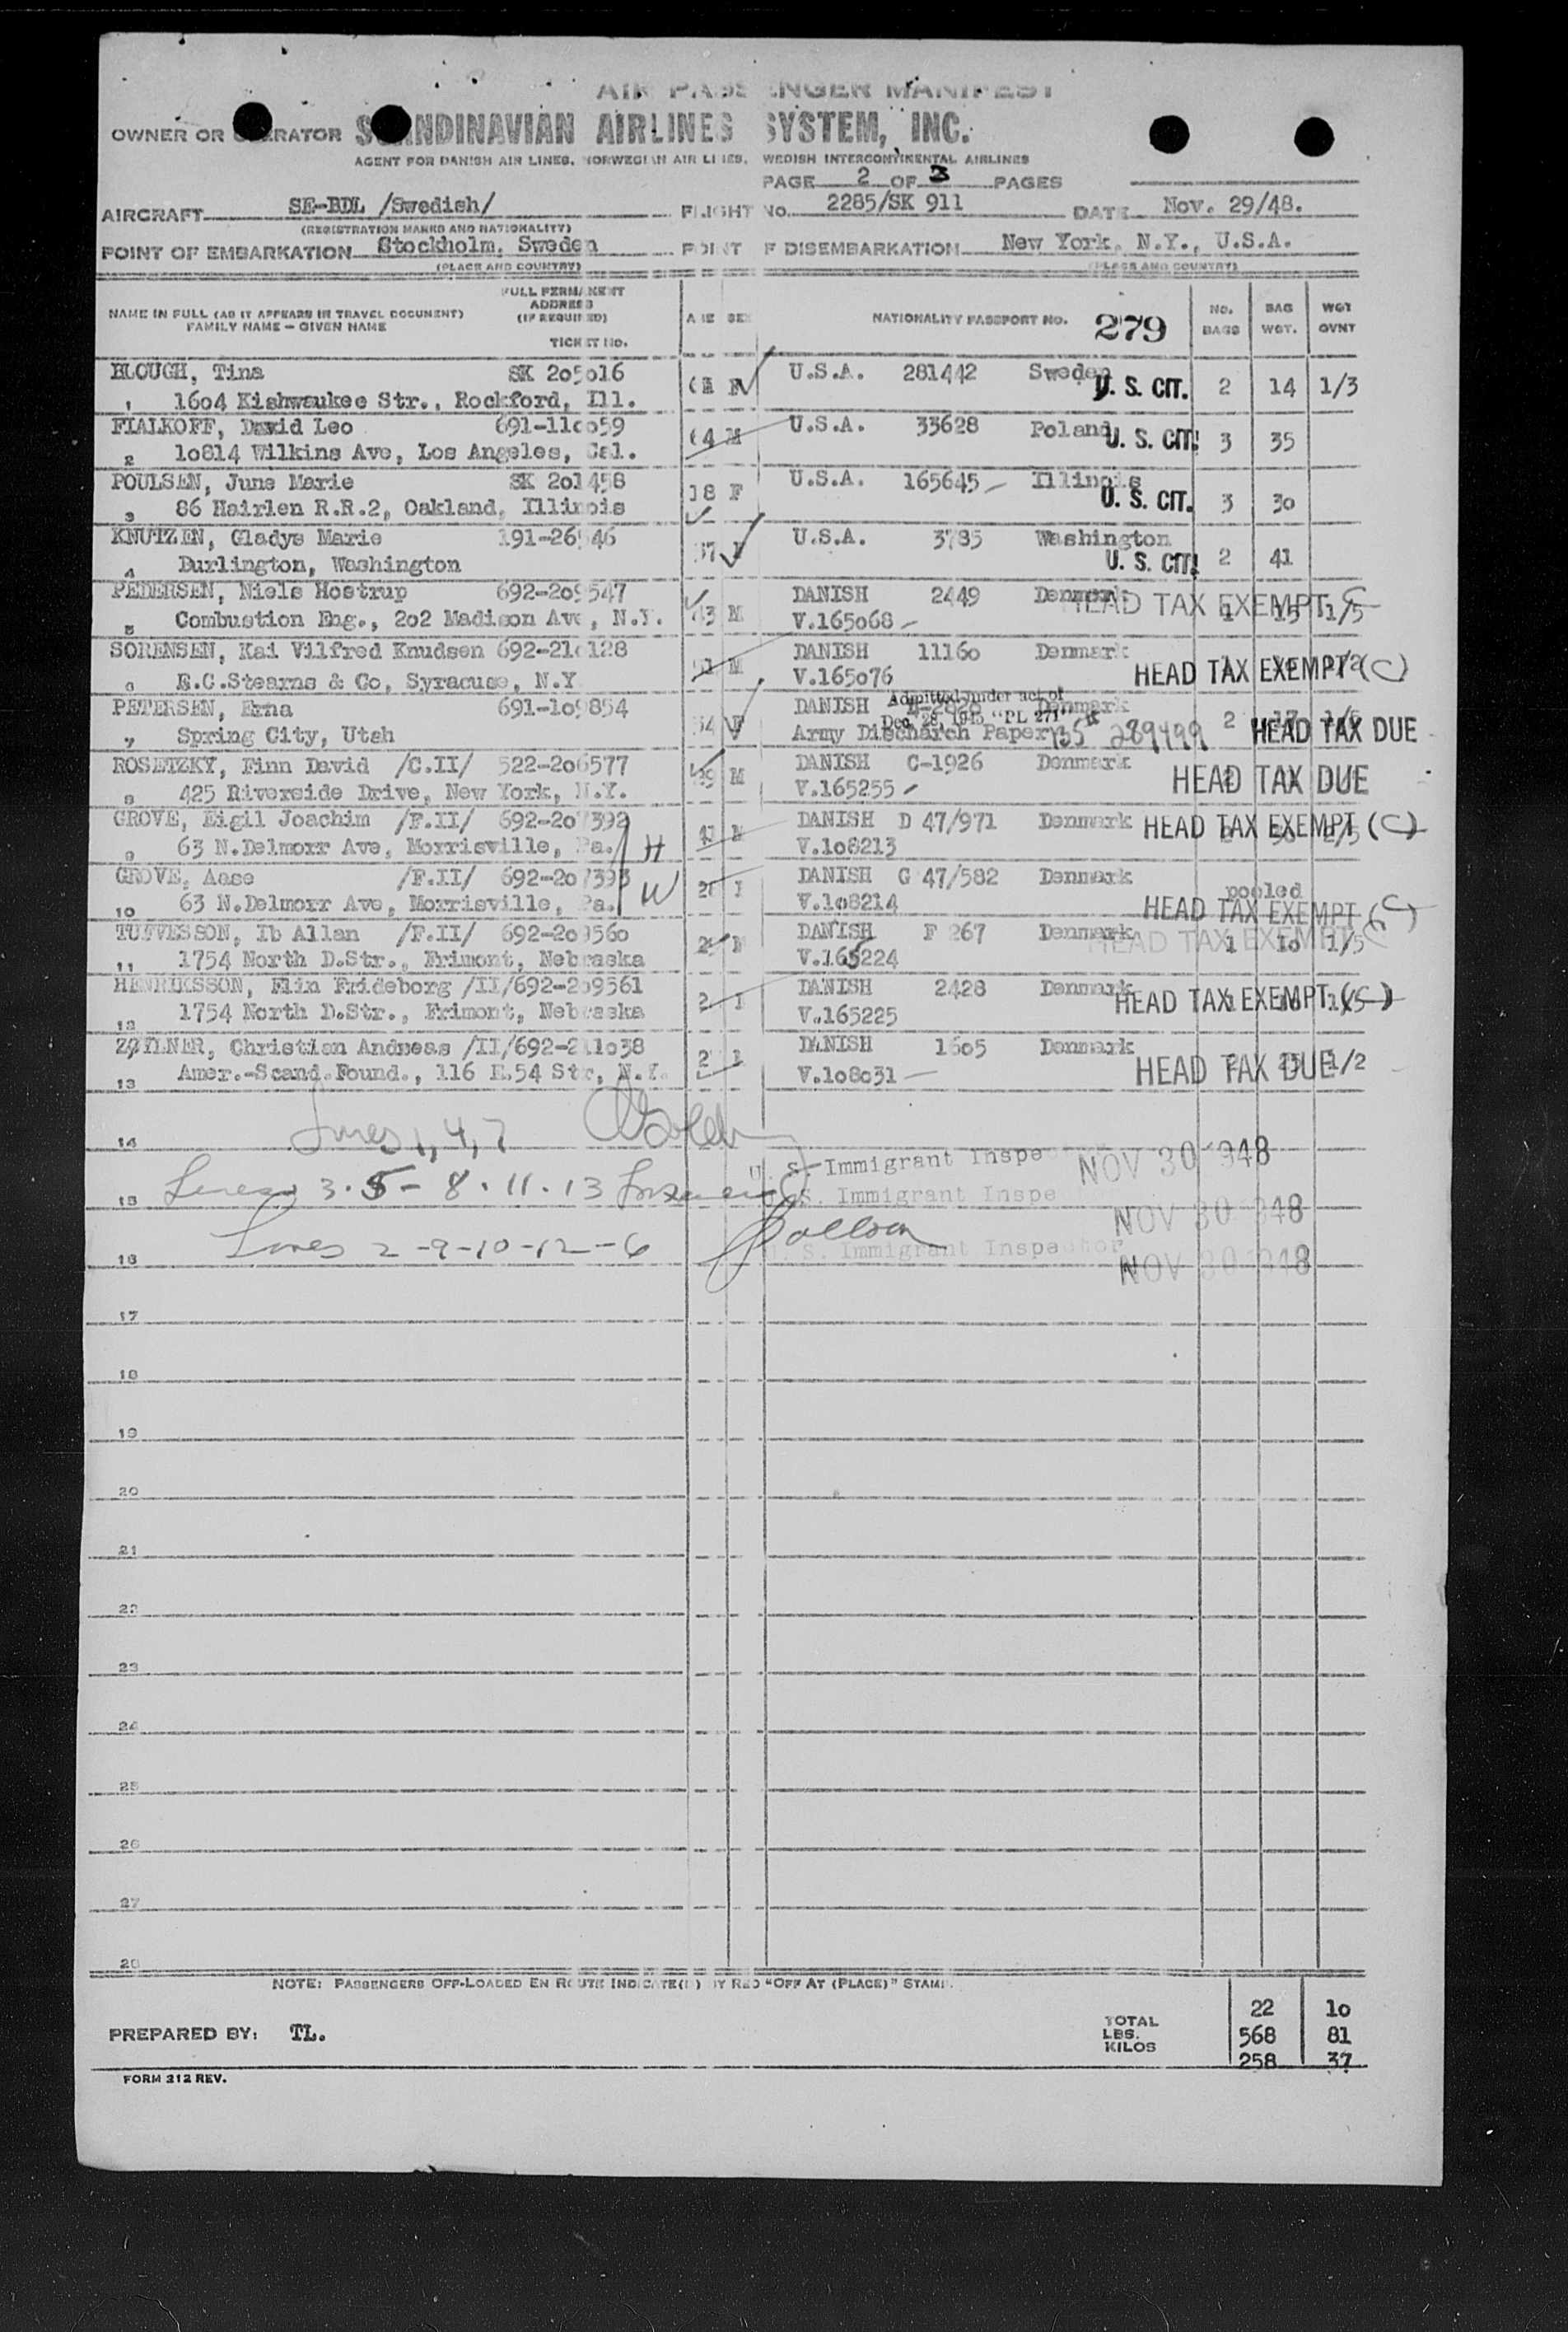 AIR PASSENGER MANIFEST
OWNER OR OPERATOR SCANDINAVIAN AIRLINES SYSTEM, INC.
AGENT FOR DANISH AIR LINES, NORWEGIAN AIR LINES, SWEDISH INTERCONTINENTAL AIRLINES
PAGE 2 OF 3 PAGES
AIRCRAFT SE-BDL /Swedish/ FLIGHT No. 2285/SK 911 DATE Nov. 29/48.
(REGISTRATION MARKS AND NATIONALITY)
POINT OF EMBARKATION Stockholm, Sweden POINT OF DISEMBARKATION New York, N.Y., U.S.A.
(PLACE AND COUNTRY) (PLACE AND COUNTRY)
NAME IN FULL (AS IT APPEARS IN TRAVEL DOCUMENT) FAMILY NAME - GIVEN NAME FULL PERMANENT ADDRESS (IF REQUIRED) TICKET No. AGE SEX NATIONALITY PASSPORT NO. 279 NO. BAGS BAG WGT. WGT OVNT
BLOUGH, Tina SK 205016 F U.S.A. 281442 Sweden U. S. CIT. 2 14 1/3
1 1604 Kishwaukee Str., Rockford, Ill.
FIALKOFF, David Leo 691-110059 64 M U.S.A. 33628 Poland U. S. CIT. 3 35
2 10814 Wilkins Ave, Los Angeles, Cal.
POULSEN, June Marie SK 201458 18 F U.S.A. 165645 Illinois U. S. CIT. 3 30
3 86 Hairlen R.R.2, Oakland, Illinois
KNUTZEN, Gladys Marie 37 F U.S.A. 3785 Washington U. S. CIT. 2 41
4 Burlington, Washington
PEDERSEN, Niels Hostrup 692-209547 43 M DANISH 2449 Denmark HEAD TAX EXEMPT C 1 15 1/5
5 Combustion Eng., 202 Madison Ave, N.Y. V.165068
SORENSEN, Kai Vilfred Knudsen 692-210128 51 M DANISH 11160 Denmark HEAD TAX EXEMPT (C)
6 E.C.Stearns & Co, Syracuse, N.Y V.165076
PETERSEN, Erna 691-109854 34 F DANISH Denmark 2 17
Admitted under act of Dec. 28, 1945 "PL 271"
7 Spring City, Utah Army Discharch Paper 289499 HEAD TAX DUE
ROSETZKY, Finn David /C.II/ 522-206577 M DANISH C-1926 Denmark HEAD TAX DUE
8 425 Riverside Drive, New York, N.Y. V.165255
GROVE, Eigil Joachim /F.II/ 692-207392 M DANISH D 47/971 Denmark HEAD TAX EXEMPT (C)
9 63 N.Delmorr Ave, Morrisville, Pa. H V.108213
GROVE, Aase /F.II/ 692-207393 F DANISH G 47/582 Denmark pooled
10 63 N.Delmorr Ave, Morrisville, Pa. W V.108214 HEAD TAX EXEMPT (C)
TUFVESSON, Ib Allan /F.II/ 692-209560 M DANISH F 267 Denmark HEAD TAX EXEMPT 1 10 1/5
11 1754 North D.Str., Frimont, Nebraska V.165224
HENRIKSSON, Elin Frideborg /II/692-209561 DANISH 2428 Denmark HEAD TAX EXEMPT (C)
12 1754 North D.Str., Frimont, Nebraska V.165225
ZØYLNER, Christian Andreas /II/692-211038 DANISH 1605 Denmark
13 Amer.-Scand.Found., 116 E.54 Str, N.Y. V.108031 HEAD TAX DUE 1/2
14 Lines 1, 4, 7
U. S. Immigrant Inspector NOV 30 1948
15 Lines 3 . 5 - 8 . 11 . 13
U. S. Immigrant Inspector NOV 30 1948
16 Lines 2 - 9 - 10 - 12 - 6
U. S. Immigrant Inspector NOV 30 1948
17
18
19
20
21
22
23
24
25
26
27
28
NOTE: PASSENGERS OFF-LOADED EN ROUTE INDICATE(D) BY RED "OFF AT (PLACE)" STAMP.
PREPARED BY: TL.
TOTAL 22 10
LBS. 568 81
KILOS 258 37
FORM 212 REV.